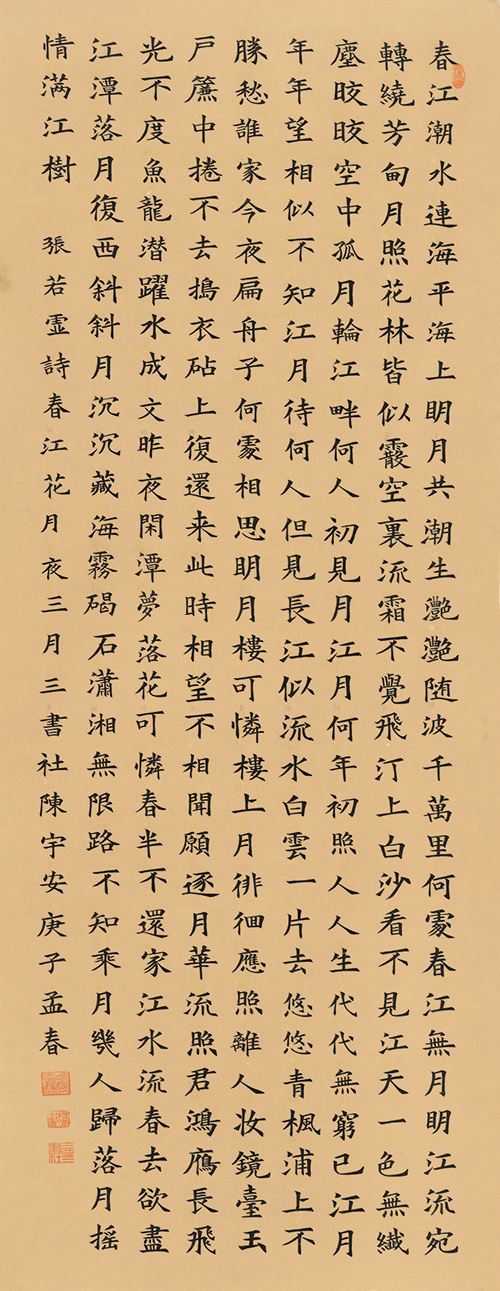 春江潮水連海平海上眀月共潮生灧灧随波千萬里何處春江無月眀江流宛
轉繞芳甸月照花林皆似霰空裏流霜不覺飛汀上白沙看不見江天一色無纖
塵晈晈空中孤月輪江畔何人初見月江月何年初照人人生代代無窮已江月
年年望相似不知江月待何人但見長江似流水白雲一片去悠悠青楓浦上不
勝愁誰家今夜扁舟子何處相思眀月樓可憐樓上月徘徊應照離人妝鏡臺玉
戶簾中捲不去搗衣砧上復還来此時相望不相聞願逐月華流照君鴻鴈長飛
光不度魚龍潜躍水成文昨夜閑潭夢落花可憐春半不還家江水流春去欲盡
江潭落月復西斜斜月沉沉藏海霧碣石瀟湘無限路不知乘月幾人歸落月摇
情满江樹 張若虛詩春江花月夜三月三書社陳宇安庚子孟春